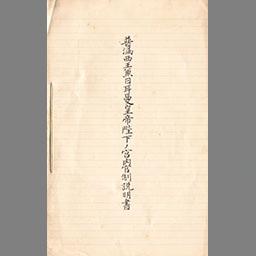 普漏西王兼日耳曼皇帝陛下ノ宮内官制説明書